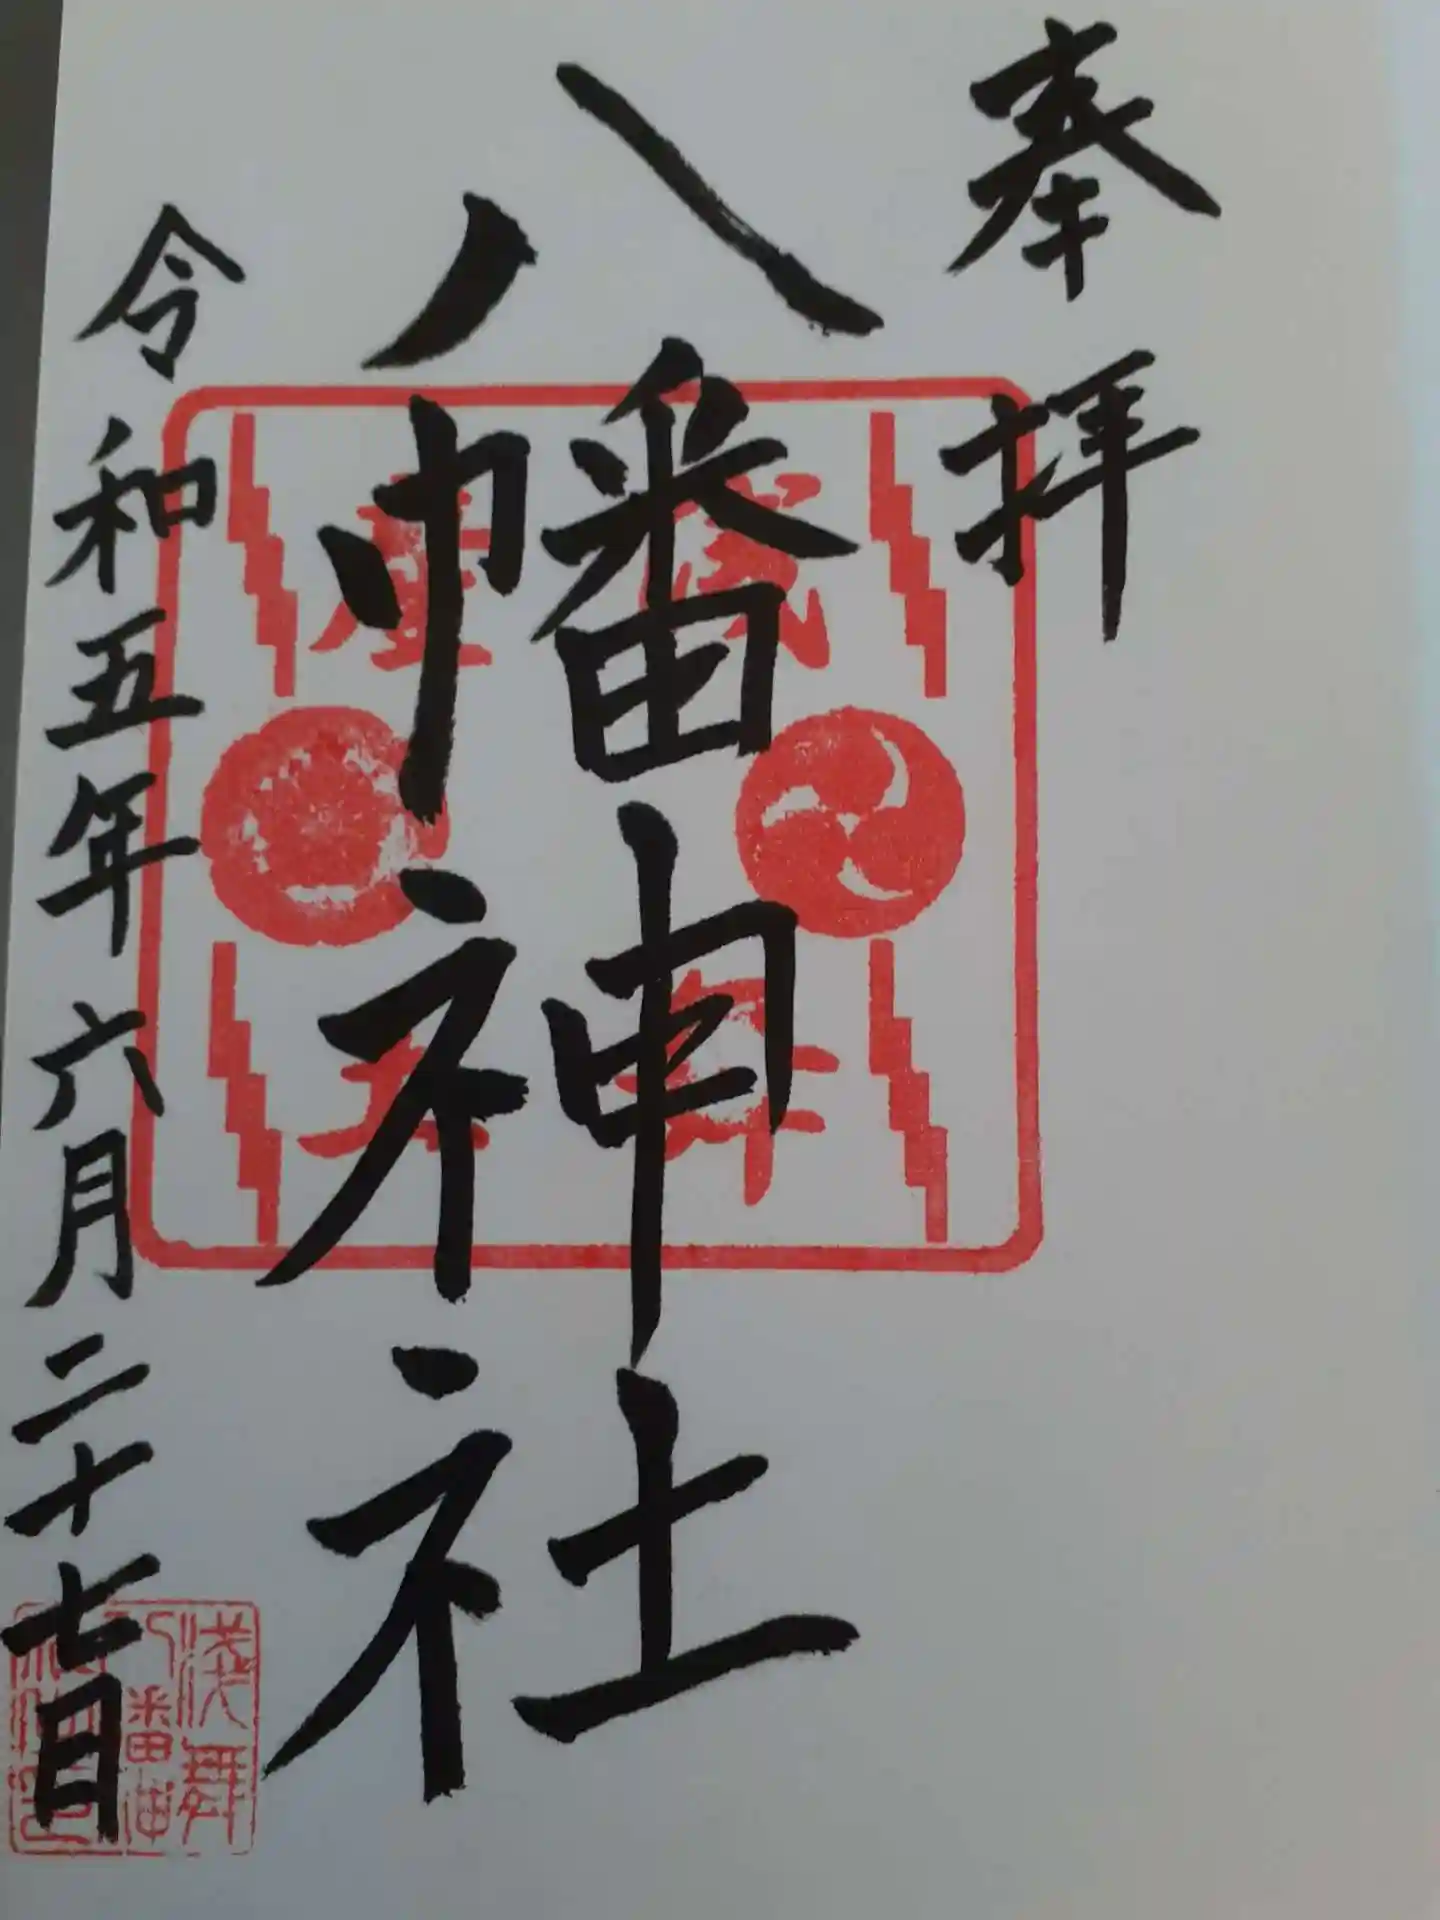 奉拝
八幡神社
令和五年六月二十七日
浅舞
八幡